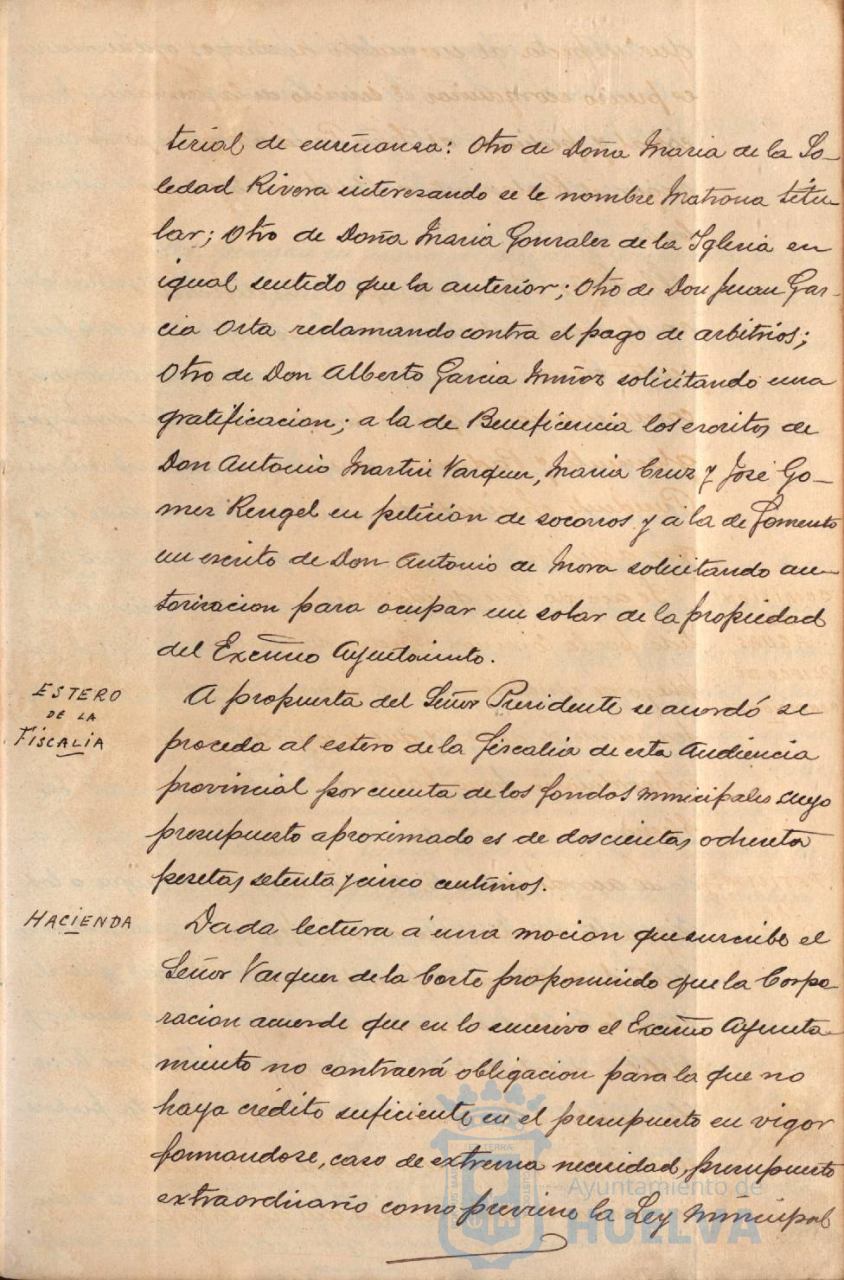 terial de enseñansa: Otro de Doña Maria de la So-
ledad Rivera interesando se le nombre Matrona titu-
lar; Otro de Doña Maria Gonzalez de la Iglesia en
igual sentido que la anterior; Otro de Don Juan Gar-
cia Orta reclamando contra el pago de arbitrios;
Otro de Don Alberto Garcia Muñoz solicitando una
gratificacion; a la de Beneficencia los escritos de
Don Antonio Martin Vazquez, Maria Cruz y José Go-
mez Rengel en peticion de socorros y á la de Fomento
un escrito de Don Antonio de Mora solicitando au-
torizacion para ocupar un solar de la propiedad
del Excmo Ayuntamiento.
ESTERO
DE LA
FISCALIA
A propuesta del Señor Presidente se acordó se
proceda al estero de la fiscalia de esta Audiencia
provincial por cuenta de los fondos municipales cuyo
presupuesto aproximado es de doscientas ochenta
pesetas setenta y cinco centimos.
HACIENDA
Dada lectura á una mocion que suscribe el
Señor Vazquez de la Corte proponiendo que la Corpo-
racion acuerde que en lo sucesivo el Excmo Ayunta-
miento no contraerá obligacion para la que no
haya crédito suficiente en el presupuesto en vigor
formandose, caso de extrema necesidad, presupuesto
extraordinario como previene la Ley Municipal
Ayuntamiento de
HUELVA